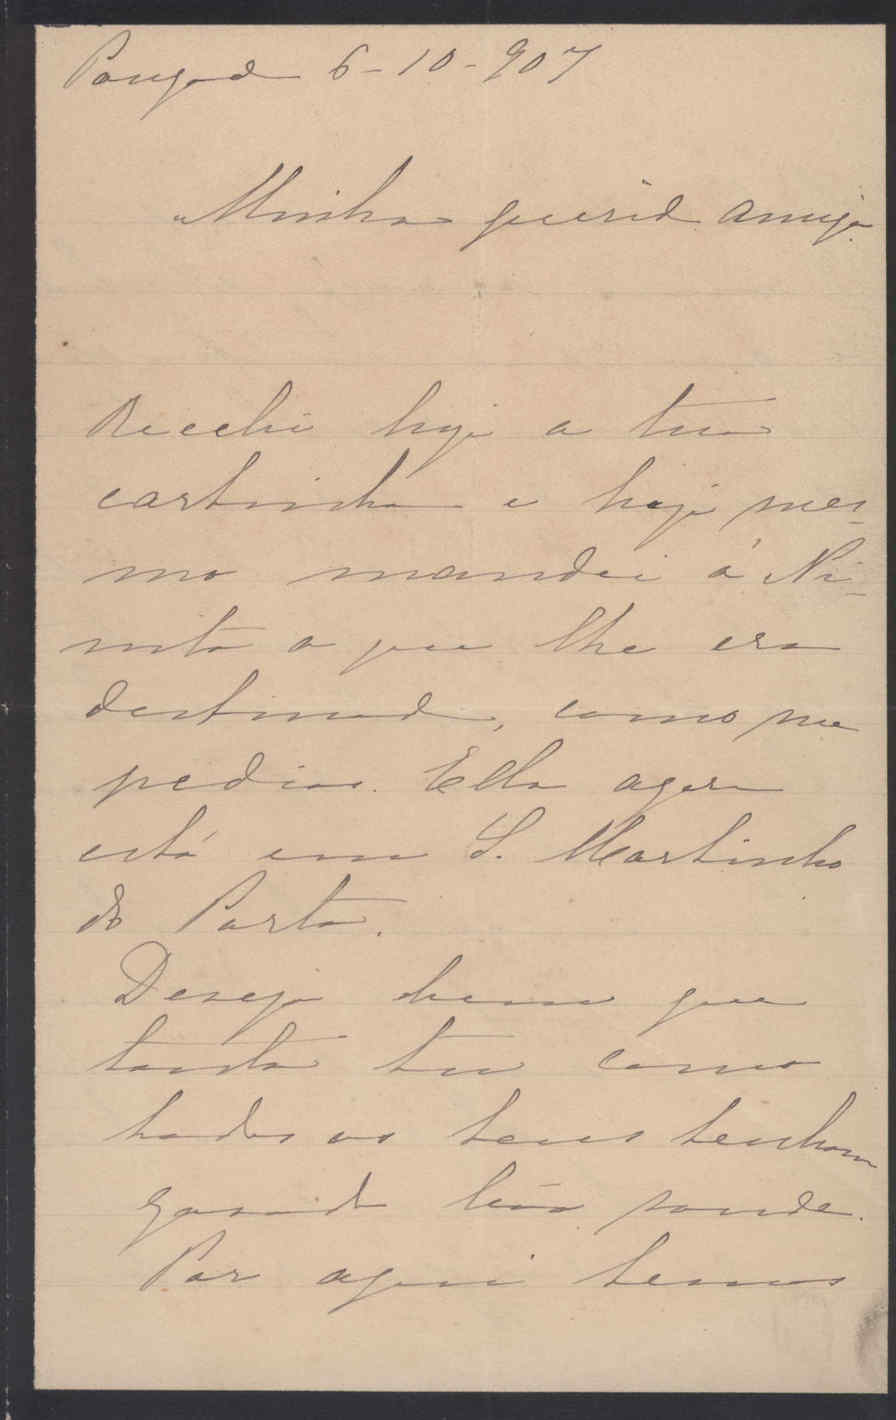 6-10-907
Minha querida amiga.
Recebi hoje a tua
cartinha e hoje mes-
mo mandei á Ni-
nita a que lhe era
destinada, como me
pedias. Ella agora
está em S. Martinho
do Porto.
Desejo bem que
tanto tu como
todos os teus tenham
gosado bôa saude.
Por aqui temos